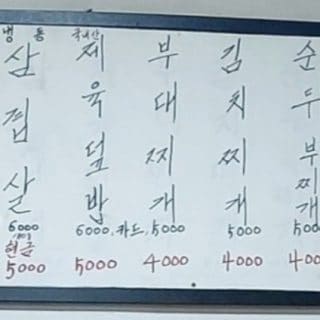 냉동
삼겹살
국내산
제육덮밥
부대찌개
김치찌개
순두부찌개
6000 6000, 카드, 5000 5000 500
현금
5000 5000 4000 4000 400